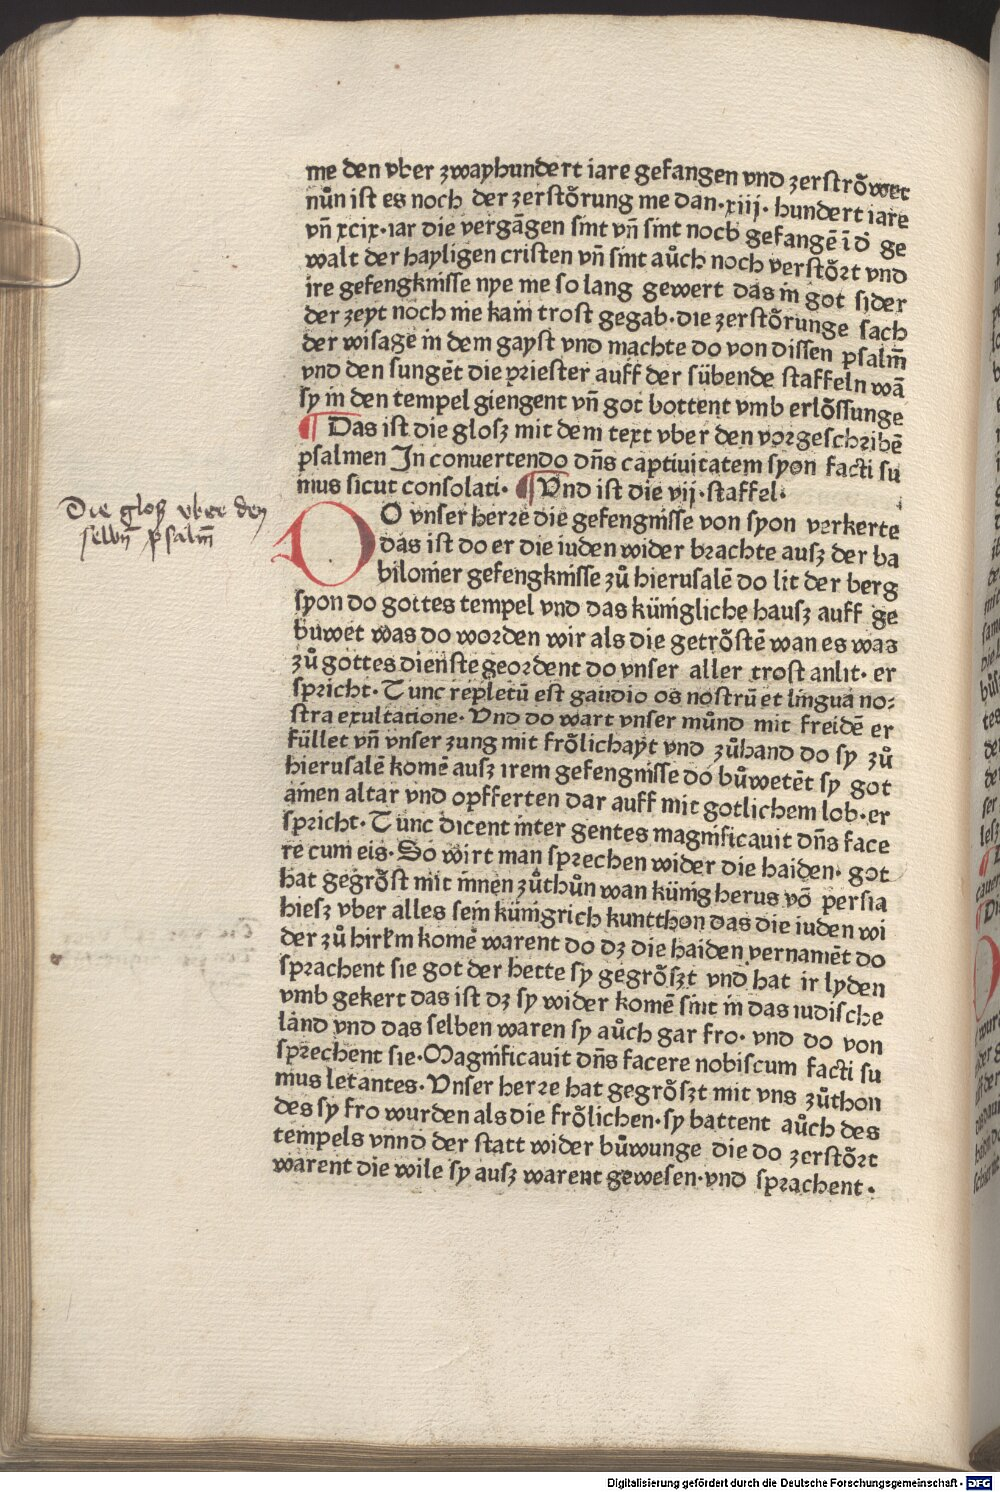 me den vber zwayhundert iare gefangen vnd zerströwet
nůn ist es noch der zerstőrung me dan·xiij· hundert iare
vn̄ xcix·iar die vergāgen sint vn̄ sint noch gefangē ī d̕ ge
walt der hayligen cristen vn̄ sint aůch noch verstőrt vnd
ire gefengknisse nye me so lang gewert das in got sider
der zeyt noch nie kain trost gegab·die zerstőrunge sach
der wisage in dem gayst vnd machte do von dissen psalm̄
vnd den sungēt die priester auff der sübende staffeln wā
sy in den tempel giengent vn̄ got bottent vmb erlőssunge
¶ Das ist die glosz mit dem text vber den vorgeschribē
psalmen In conuertendo dn̄s captiuitatem syon facti su
mus sicut consolati· ¶ Vnd ist die vij·staffel·
Die glosz vber den
selbn̄ psalm̄
DO vnser herre die gefengnisse von syon verkerte
das ist do er die iuden wider brachte ausz der ba
bilonier gefengknisse zů hierusalē do lit der berg
syon do gottes tempel vnd das künigliche hausz auff ge
buwet was do worden wir als die getrőstē wan es was
zů gottes dienste geordent do vnser aller trost anlit· er
spricht·Tunc repletū est gaudio os nostrū et lingua no⸗
stra exultatione·Vnd do wart vnser můnd mit freidē er
füllet vn̄ vnser zung mit frőlichayt vnd zůhand do sy zů
hierusalē komē ausz irem gefengnisse do bůwetēt sy got
ainen altar vnd opfferten dar auff mit gotlichem lob·er
spricht·Tunc dicent inter gentes magnificauit dn̄s face
re cum eis·So wirt man sprechen wider die haiden· got
hat gegrőst mit innen zůthůn wan künig herus vō persia
hiesz vber alles sein künigrich kuntthon das die iuden wi
der zů hirłm komē warent do dz die haiden vernamēt do
sprachent sie got der hette sy gegrőszt vnd hat ir lyden
vmb gekert das ist dz sy wider komē sint in das iudische
land vnd das selben waren sy aůch gar fro· vnd do von
sprechent sie·Magnificauit dn̄s facere nobiscum facti su
mus letantes·Vnser herre hat gegrőszt mit vns zůthon
des sy fro wurden als die frőlichen·sy battent aůch des
tempels vnnd der statt wider bůwunge die do zerstőrt
warent die wile sy ausz warent gewesen·vnd sprachent·
Digitalisierung gefördert durch die Deutsche Forschungsgemeinschaft - DFG